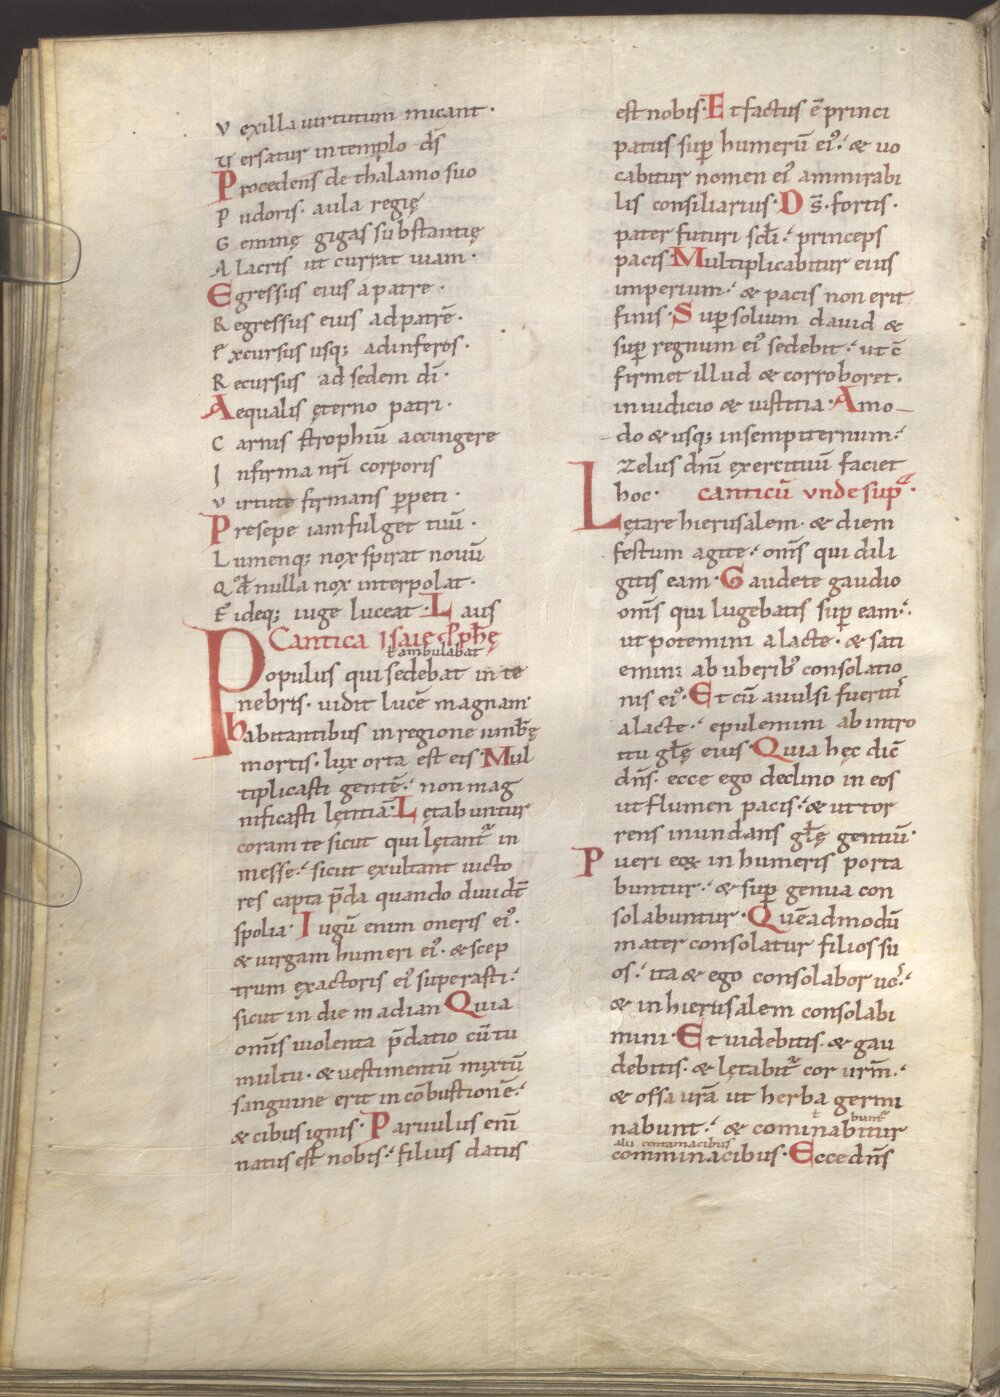 V exilla uirtutum micant ·
V ersatur in templo d̅s
Procedens de thalamo suo
P udoris · aula regię
G eminę gigas substantię
A lacris ut currat uiam ·
Egressus eius a patre ·
R egressus eius ad patrē ·
E xcursus usq; ad inferos ·
R ecursus ad sedem dī ·
Aequalis ęterno patri ·
C arnis strophiū accingere
I nfirma nr̄i corporis
V irtute firmans ꝑpeti ·
Presepe iam fulget tuū ·
L umenq; nox spirat nouū
Qđ nulla nox interpolat ·
F ideq; iuge luceat · Laus
Cantica Isaie ꝓph̄ę
ł ambulabat
Populus qui sedebat in te
nebris · uidit lucē magnam ·
habitantibus in regione umb̄ę
mortis · lux orta est eis · Mul
tiplicasti gentē · non mag
nificasti lętitiā · Lętabuntur
coram te sicut qui lętant᷑ in
messe · sicut exultant uicto
res capta p̄da quando diuidt̄
spolia · Iugū enim oneris ei᾽ ·
& uirgam humeri ei᾽ · & scep
trum exactoris ei᾽ superasti ·
sicut in die madian Quia
om̄s uiolenta p̄datio cū tu
multu · & uestimentū mixtū
sanguine erit in cōbustionē ·
& cibus ignis · Paruulus enī
natus est nobis · filius datus
est nobis · Et factus ē princi
patus suꝑ humerū ei᾽ · & uo
cabitur nomen ei᾽ ammirabi
lis consiliarius · D s̄ · fortis ·
pater futuri scłi · princeps
pacis Multiplicabitur eius
imperium · & pacis non erit
finis · Suꝑ solium dauid &
suꝑ regnum ei᾽ sedebit · ut c̄
firmet illud & corroboret ·
in iudicio & iustitia · Amo
do & usq; in sempiternum ·
Zelus dn̄i exercituū faciet
hoc · canticū vnde suꝑ ·
Lętare hierusalem · & diem
festum agite · om̄s qui dili
gitis eam · Gaudete gaudio
om̄s qui lugebatis suꝑ eam ·
ut potemini a lacte · & sati
emini ab uberib᾽ consolatio
nis ei᾽ · Et cū auulsi fuerit᾽
a lacte · epulemini ab intro
itu gł̄ę eius · Quia hęc dic̄
dn̄s · ecce ego declino in eos
ut flumen pacis · & ut tor
rens inundans gł̄ę gentiū ·
Pueri eoꝝ in humeris porta
buntur · & suꝑ genua con
solabuntur · Quēadmodū
mater consolatur filios su
os · ita & ego consolabor uo᾽ ·
& in hierusalem consolabi
mini · Et uidebitis · & gau
debitis · & lętabit᷑ cor ur̄m ·
& ossa ur̄a ut herba germi
ł bunt᷑
nabunt · & cominabitur
alii contamacibus
comminacibus · Ecce dn̄s